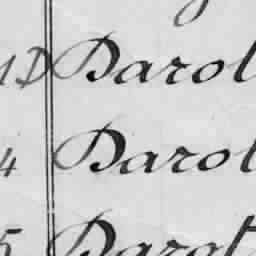 1D Darol
4 Darol
5 Darot